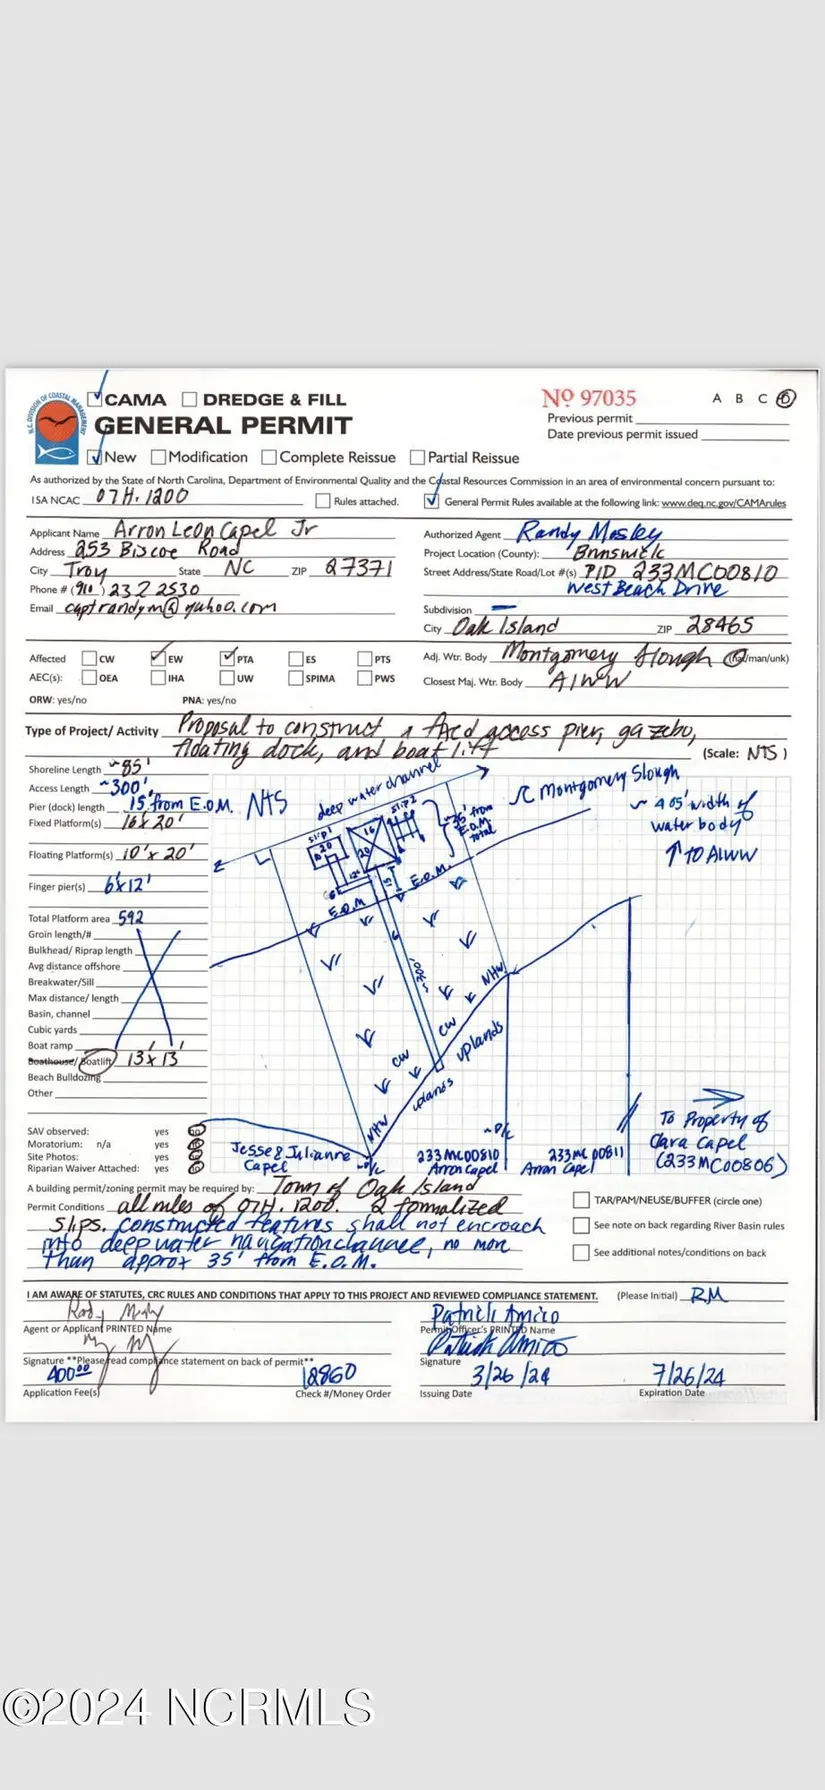 CAMA DREDGE & FILL
GENERAL PERMIT
No 97035 A B C D
Previous permit
Date previous permit issued
New Modification Complete Reissue Partial Reissue
As authorized by the State of North Carolina, Department of Environmental Quality and the Coastal Resources Commission in an area of environmental concern pursuant to:
15A NCAC 07H.1200 Rules attached. General Permit Rules available at the following link: www.deq.nc.gov/CAMArules
Applicant Name Arron Leon Capel Jr
Address 253 Biscoe Road
City Troy State NC ZIP 27371
Phone # (910) 232 2530
Email captrandym@yahoo.com
Authorized Agent Randy Mosley
Project Location (County): Brunswick
Street Address/State Road/Lot #(s) PID 233MC00810
West Beach Drive
Subdivision —
City Oak Island ZIP 28465
Affected CW EW PTA ES PTS
AEC(s): OEA IHA UW SPIMA PWS
ORW: yes/no PNA: yes/no
Adj. Wtr. Body Montgomery Slough (nat/man/unk)
Closest Maj. Wtr. Body AIWW
Type of Project/ Activity Proposal to construct a fixed access pier, gazebo,
floating dock, and boat lift (Scale: NTS)
Shoreline Length ~85'
Access Length ~300'
Pier (dock) length 15' from E.O.M.
Fixed Platform(s) 16' x 20'
Floating Platform(s) 10' x 20'
Finger pier(s) 6'x12'
Total Platform area 592
Groin length/#
Bulkhead/ Riprap length
Avg distance offshore
Breakwater/Sill
Max distance/ length
Basin, channel
Cubic yards
Boat ramp
Boathouse/ Boatlift 13' x 13'
Beach Bulldozing
Other
SAV observed: yes no
Moratorium: n/a yes no
Site Photos: yes no
Riparian Waiver Attached: yes no
NTS
deep water channel
Montgomery Slough
~ 405' width of
water body
↑ TO AIWW
slip 1
slip 2
16
20
~35' from
E.O.M
total
E.O.M.
E.O.M
6
~300'
NHW
CW
uplands
CW
uplands
NHW
~P/L
~P/L
Jesse & Julianne
Capel
233MC00810
Arron Capel
233MC00811
Arron Capel
To Property of
Clara Capel
(233MC00806)
A building permit/zoning permit may be required by: Town of Oak Island
Permit Conditions all rules of 07H.1200. 2 formalized
slips. Constructed features shall not encroach
into deep water navigation channel, no more
than approx 35' from E.O.M.
TAR/PAM/NEUSE/BUFFER (circle one)
See note on back regarding River Basin rules
See additional notes/conditions on back
I AM AWARE OF STATUTES, CRC RULES AND CONDITIONS THAT APPLY TO THIS PROJECT AND REVIEWED COMPLIANCE STATEMENT. (Please Initial) RM
Randy Mosley
Agent or Applicant PRINTED Name
Signature **Please read compliance statement on back of permit**
400.00 12860
Application Fee(s) Check #/Money Order
Patrick Amico
Permit Officer's PRINTED Name
Patrick Amico
Signature
3/26/24 7/26/24
Issuing Date Expiration Date
©2024 NCRMLS